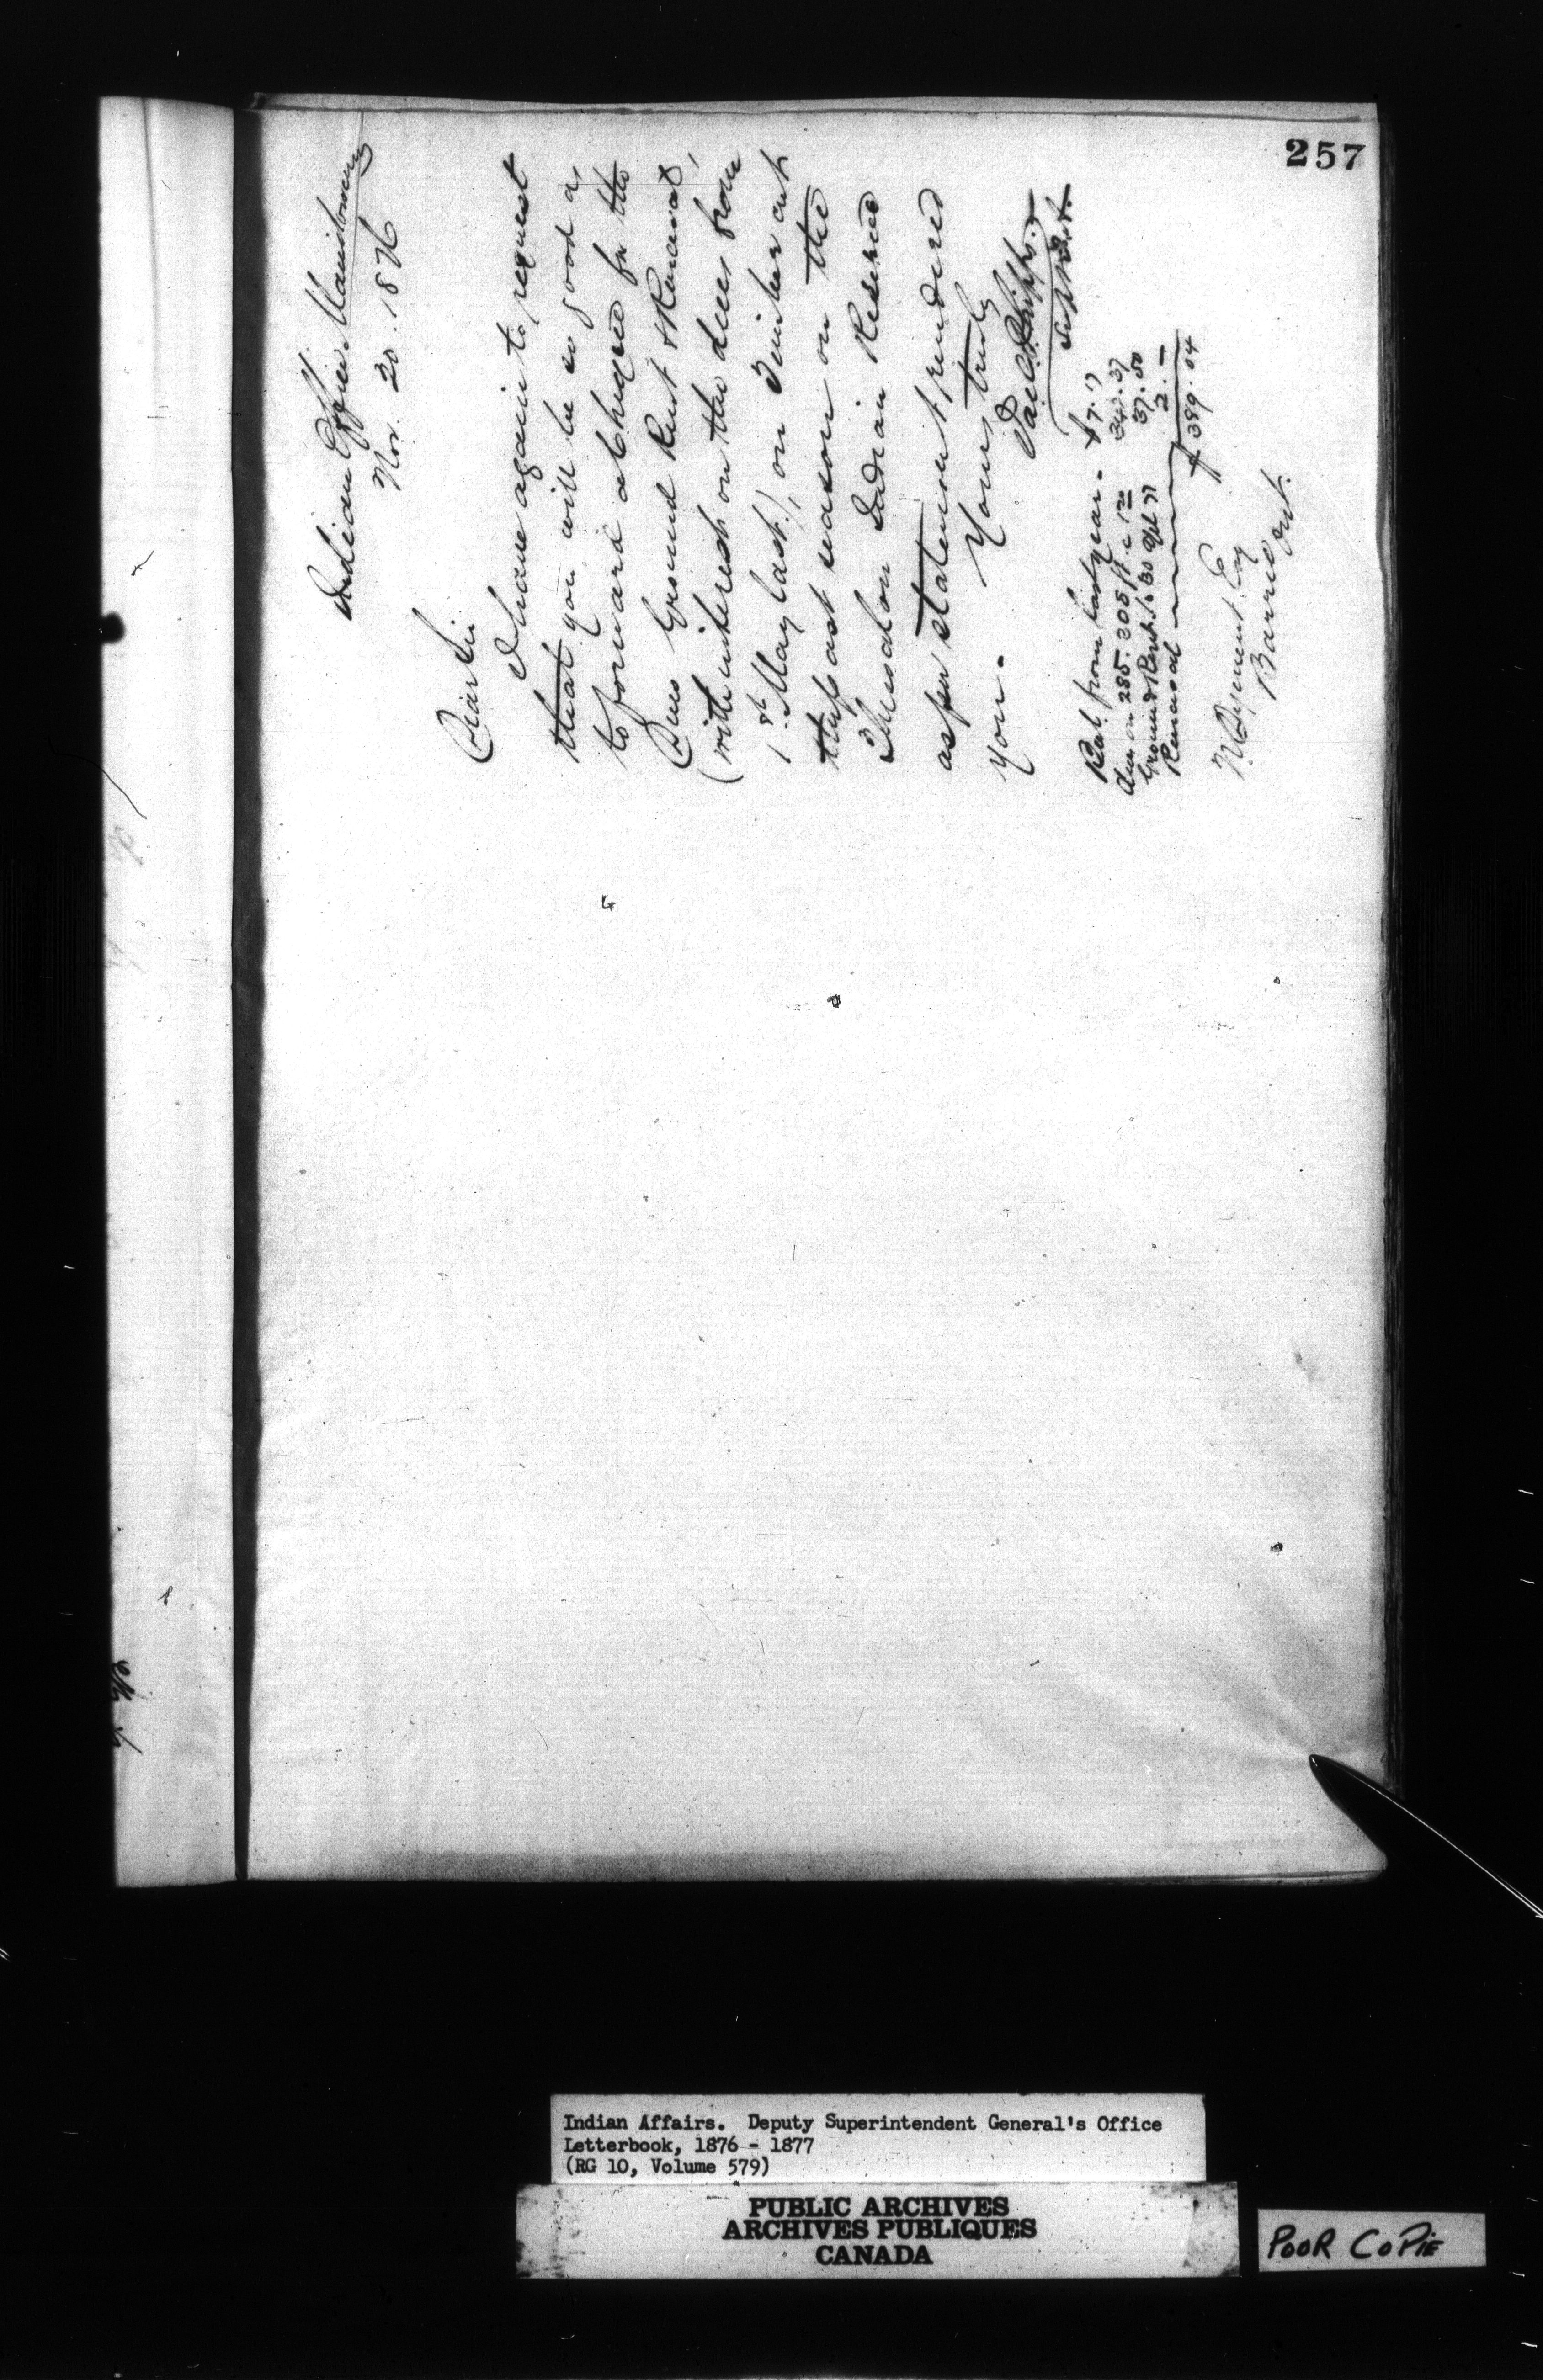 257
Indian Office Manitowaning
Nov. 20. 1876
Dear Sir
I have again to request
that you will be so good as
to forward a cheque for the
Dues Ground Rent & Renewal,
(with interest on the dues from
1st May last), on Timber cut
this past season on the
Thessalon Indian Reserve
as per statement rendered
you.
Yours truly
J. C. Phipps
Supdt.
Bal. from last year. $7.17
Dues on 285.308 ft. c 120 342.37
Ground Rent to 30 Apl 77 37.50
Renewal 2.-
$389.04
N. Dyment Esq
Barrie Ont.
Indian Affairs. Deputy Superintendent General's Office
Letterbook, 1876 - 1877
(RG 10, Volume 579)
PUBLIC ARCHIVES
ARCHIVES PUBLIQUES
CANADA
POOR COPIE